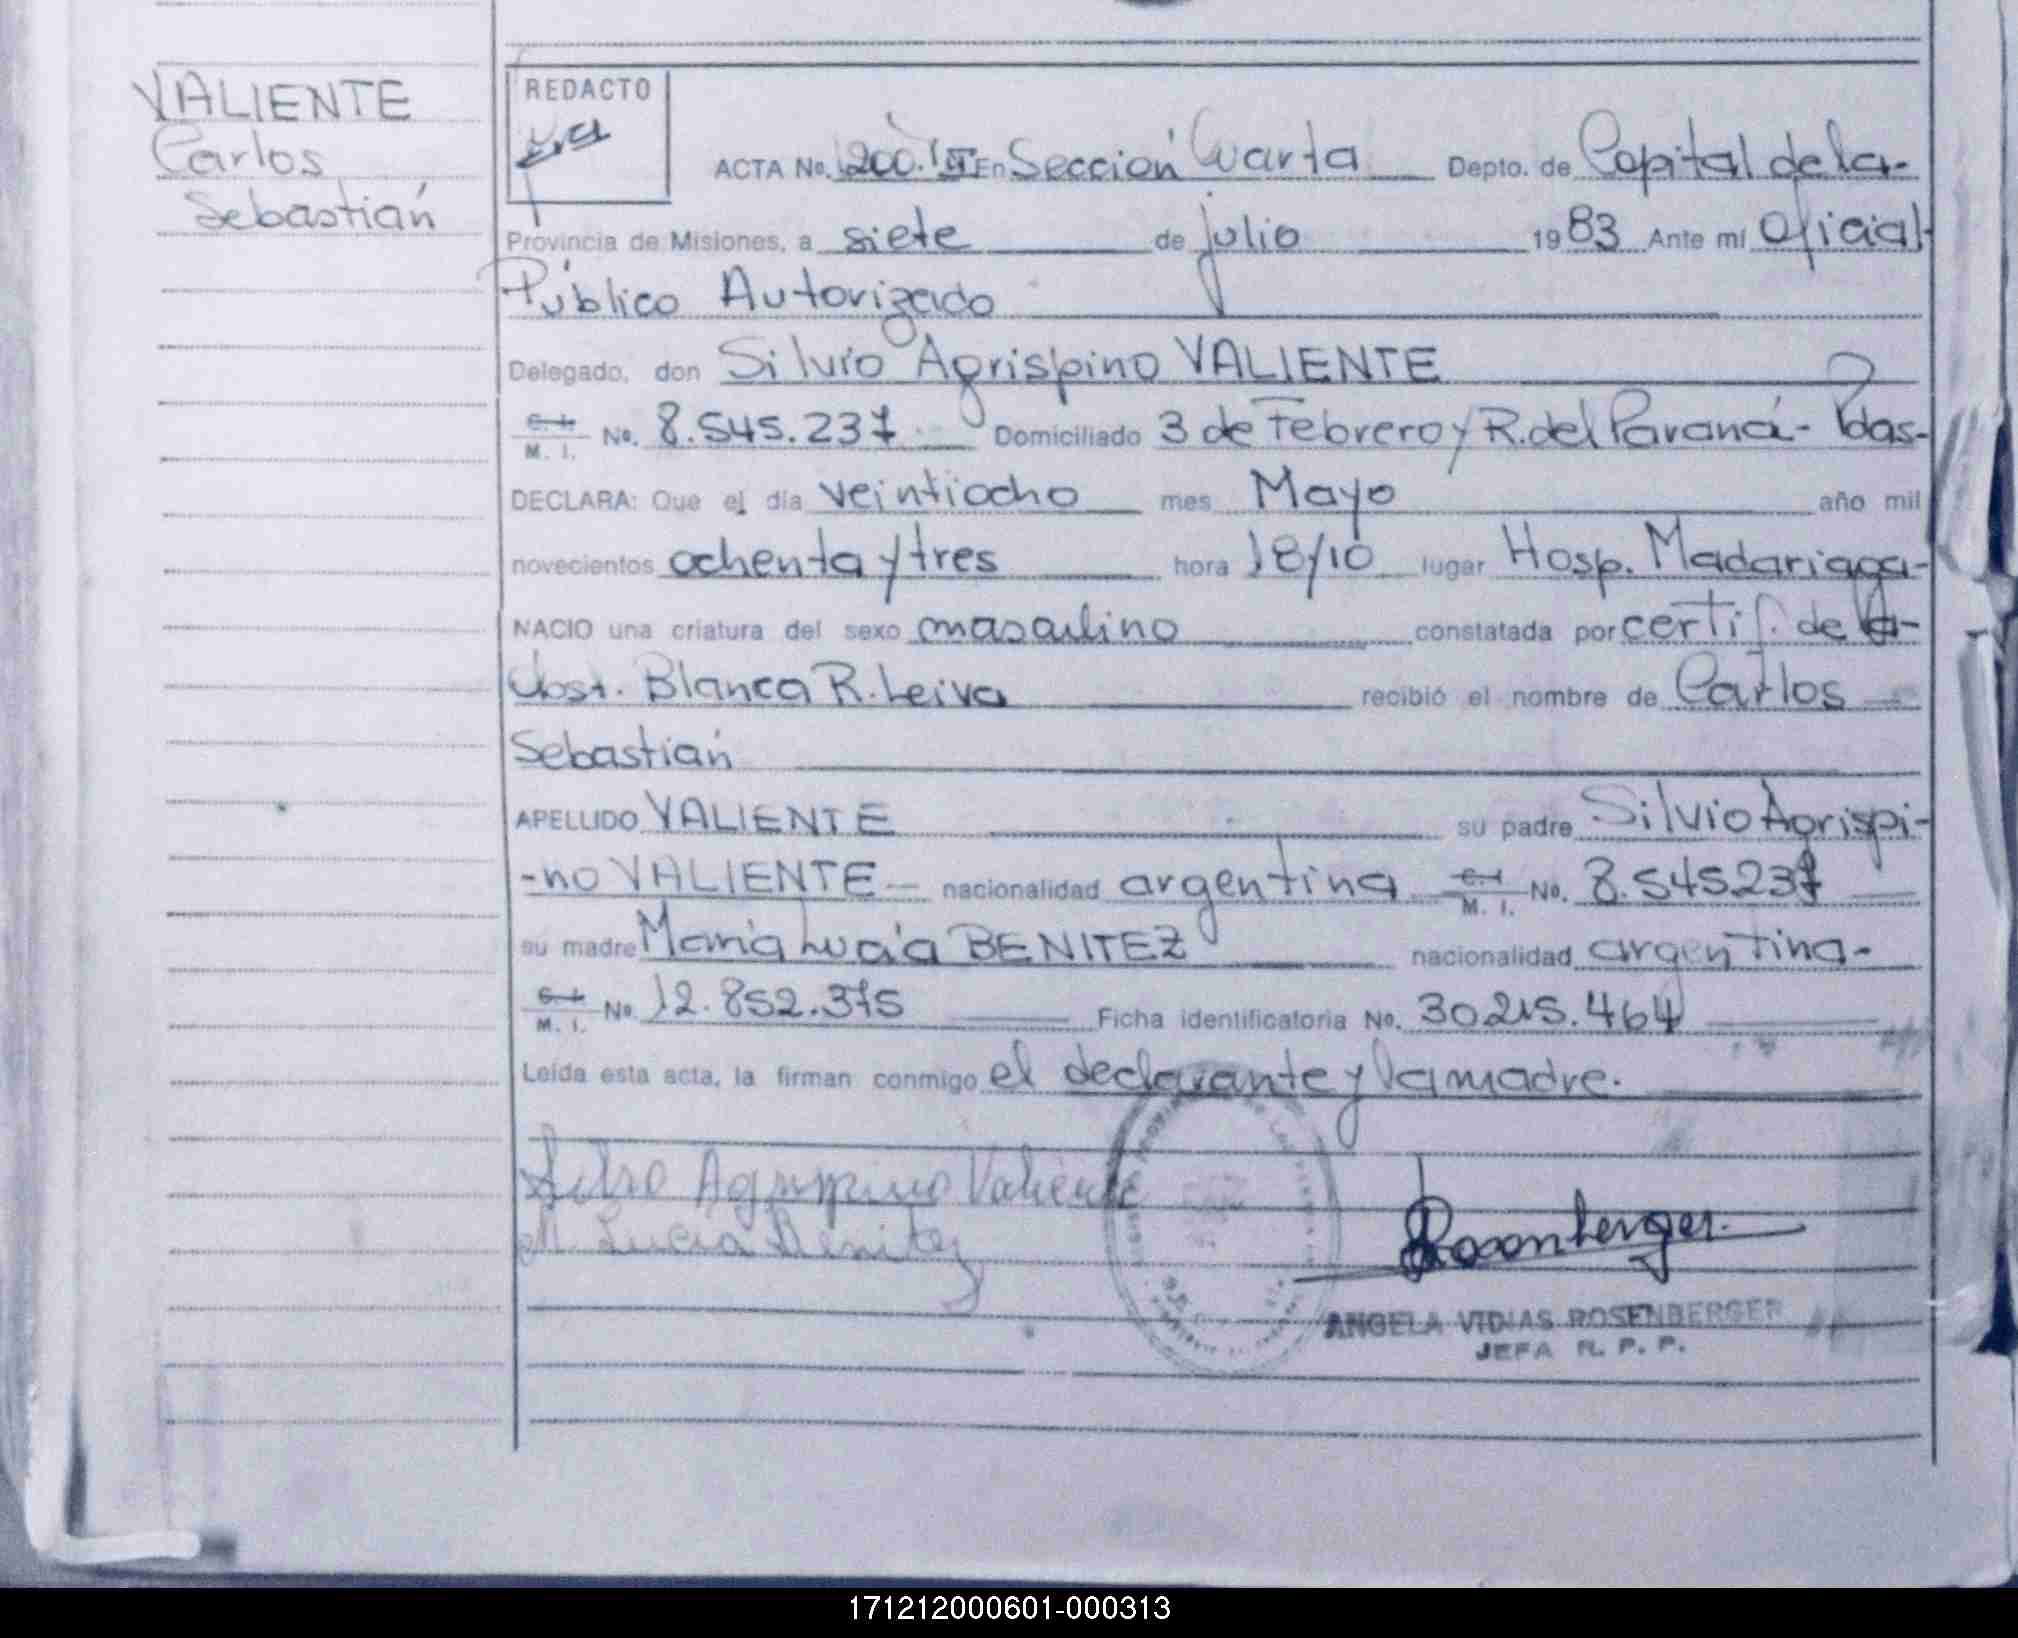 VALIENTE
Carlos
Sebastián
REDACTO
ACTA No. 200. En Sección Cuarta Depto. de Capital de la-
Provincia de Misiones, a siete de julio 1983 Ante mí Oficial
Público Autorizado
Delegado, don Silvio Agrispino VALIENTE
C. I. M. I. No. 8.545.237 Domiciliado 3 de Febrero y R. del Paraná - Pdas-
DECLARA: Que el día veintiocho mes Mayo año mil
novecientos ochenta y tres hora 18/10 lugar Hosp. Madariaga-
NACIO una criatura del sexo masculino constatada por certif. de la-
Obst. Blanca R. Leiva recibió el nombre de Carlos
Sebastián
APELLIDO VALIENTE su padre Silvio Agrispi-
-no VALIENTE nacionalidad argentina C. I. M. I. No. 8.545237
su madre María Lucía BENITEZ nacionalidad argentina-
C. I. M. I. No. 12.852.375 Ficha identificatoria No. 30215.464
Leída esta acta, la firman conmigo el declarante y la madre.
Silvio Agrispino Valiente
M. Lucia Benitez
Rosenberger
ANGELA VIDIAS ROSENBERGER
JEFA R. P. P.
171212000601-000313